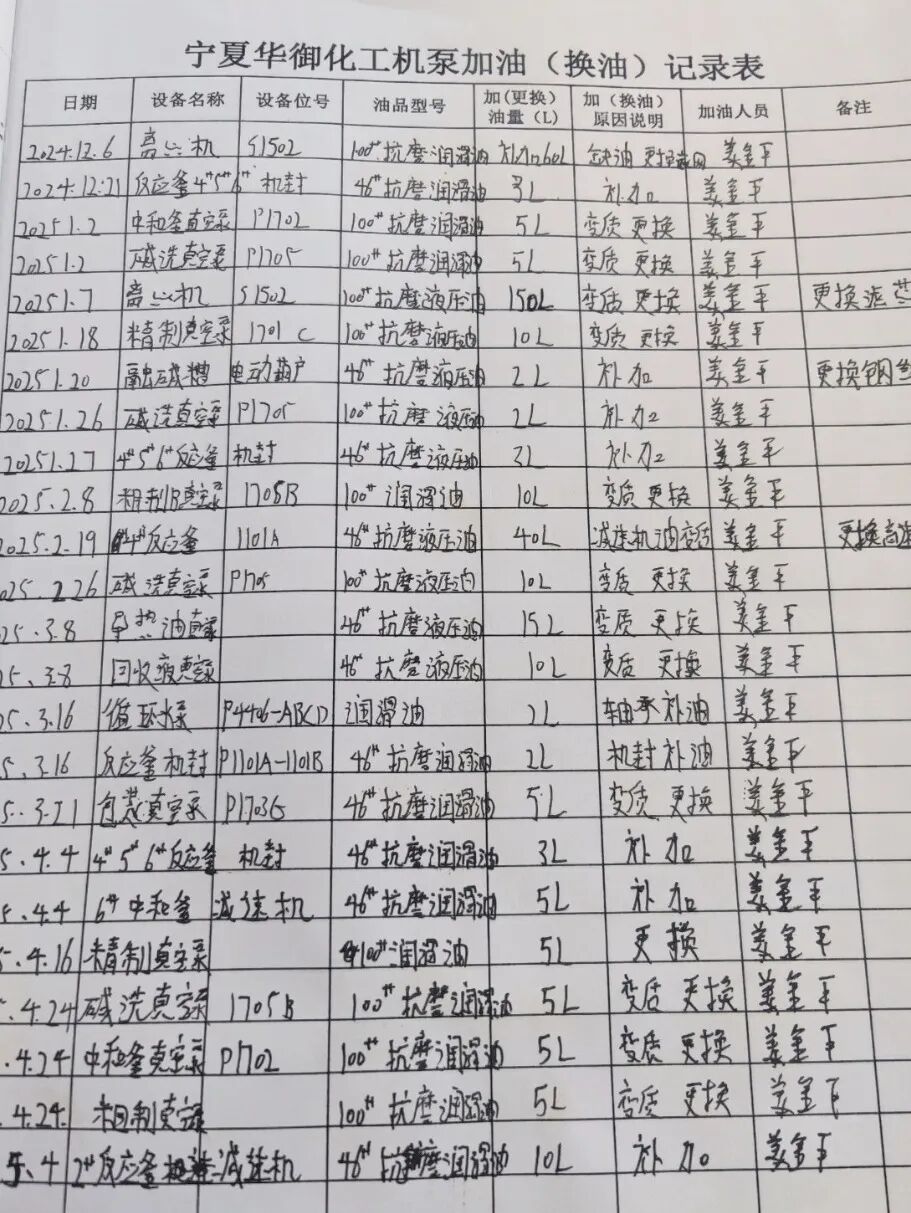 宁夏华御化工机泵加油（换油）记录表
日期 设备名称 设备位号 油品型号 加(更换)油量（L） 加（换油）原因说明 加油人员 备注
2024.12.6 离心机 S1502 100#抗磨润滑油 补加60L 缺油 更换 姜金平
2024.12.21 反应釜4#5#6# 机封 46#抗磨润滑油 3L 补加 姜金平
2025.1.2 中和釜真空泵 P1702 100#抗磨润滑油 5L 变质 更换 姜金平
2025.1.2 碱洗真空泵 P1705 100#抗磨润滑油 5L 变质 更换 姜金平
2025.1.7 离心机 S1502 100#抗磨液压油 150L 变质 更换 姜金平 更换滤芯
2025.1.18 精制真空泵 1701C 100#抗磨液压油 10L 变质 更换 姜金平
2025.1.20 融碱槽 电动葫芦 46#抗磨液压油 2L 补加 姜金平 更换钢丝
2025.1.26 碱洗真空泵 P1705 100#抗磨液压油 2L 补加 姜金平
2025.1.27 4#5#6#反应釜 机封 46#抗磨液压油 3L 补加 姜金平
2025.2.8 粗制B真空泵 1705B 100#润滑油 10L 变质 更换 姜金平
2025.2.19 4#反应釜 1101A 46#抗磨液压油 40L 减速机油变质 姜金平 更换高速
025.2.26 碱洗真空泵 P1705 100#抗磨液压油 10L 变质 更换 姜金平
25.3.8 导热油真空泵 46#抗磨液压油 15L 变质 更换 姜金平
25.3.8 回收液真空泵 46#抗磨液压油 10L 变质 更换 姜金平
25.3.16 循环水泵 P4406-ABCD 润滑油 2L 轴承补油 姜金平
5.3.16 反应釜机封 P1101A-1101B 46#抗磨润滑油 2L 机封补油 姜金平
5.3.21 包装真空泵 P1703G 46#抗磨润滑油 5L 变质 更换 姜金平
5.4.4 4#5#6#反应釜 机封 46#抗磨润滑油 3L 补加 姜金平
5.4.4 6#中和釜 减速机 46#抗磨润滑油 5L 补加 姜金平
5.4.16 精制真空泵 100润滑油 5L 更换 姜金平
.4.24 碱洗真空泵 1705B 100#抗磨润滑油 5L 变质 更换 姜金平
.4.24 中和釜真空泵 P1702 100#抗磨润滑油 5L 变质 更换 姜金平
.4.24. 粗制真空泵 100#抗磨润滑油 5L 变质 更换 姜金平
5.4 2#反应釜 减速机 46#抗磨润滑油 10L 补加 姜金平